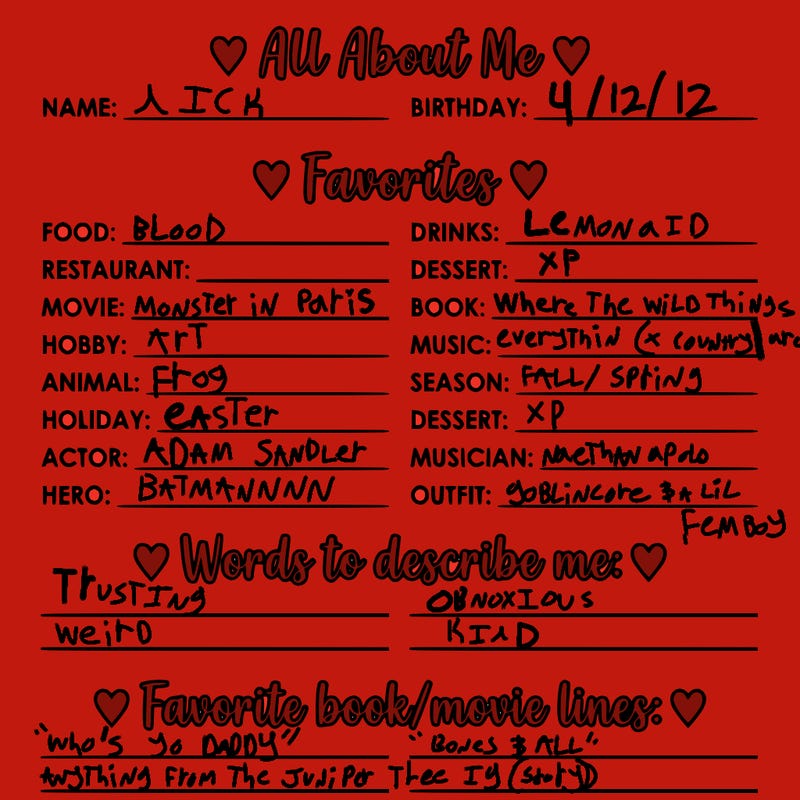 All About Me
NAME: NICK BIRTHDAY: 4/12/12
Favorites
FOOD: BLOOD DRINKS: LEMONaID
RESTAURANT: DESSERT: XP
MOVIE: MONSTer iN PariS BOOK: Where The WiLD Things
HOBBY: ArT MUSIC: everyThiN (x couNtry)
ANIMAL: Frog SEASON: FALL/ SPriNg
HOLIDAY: eASTer DESSERT: XP
ACTOR: ADAM SANDLer MUSICIAN: NaeThAN apolo
HERO: BATMANNNN OUTFIT: goBLiNcore & A LiL
FeMBoy
Words to describe me:
TrusTINg OBNOXIOUS
weirD KIND
Favorite book/movie lines:
"Who's yo DADDY" "BONES & ALL"
ANyThiNg From The JuNiper Tree Ig (story)